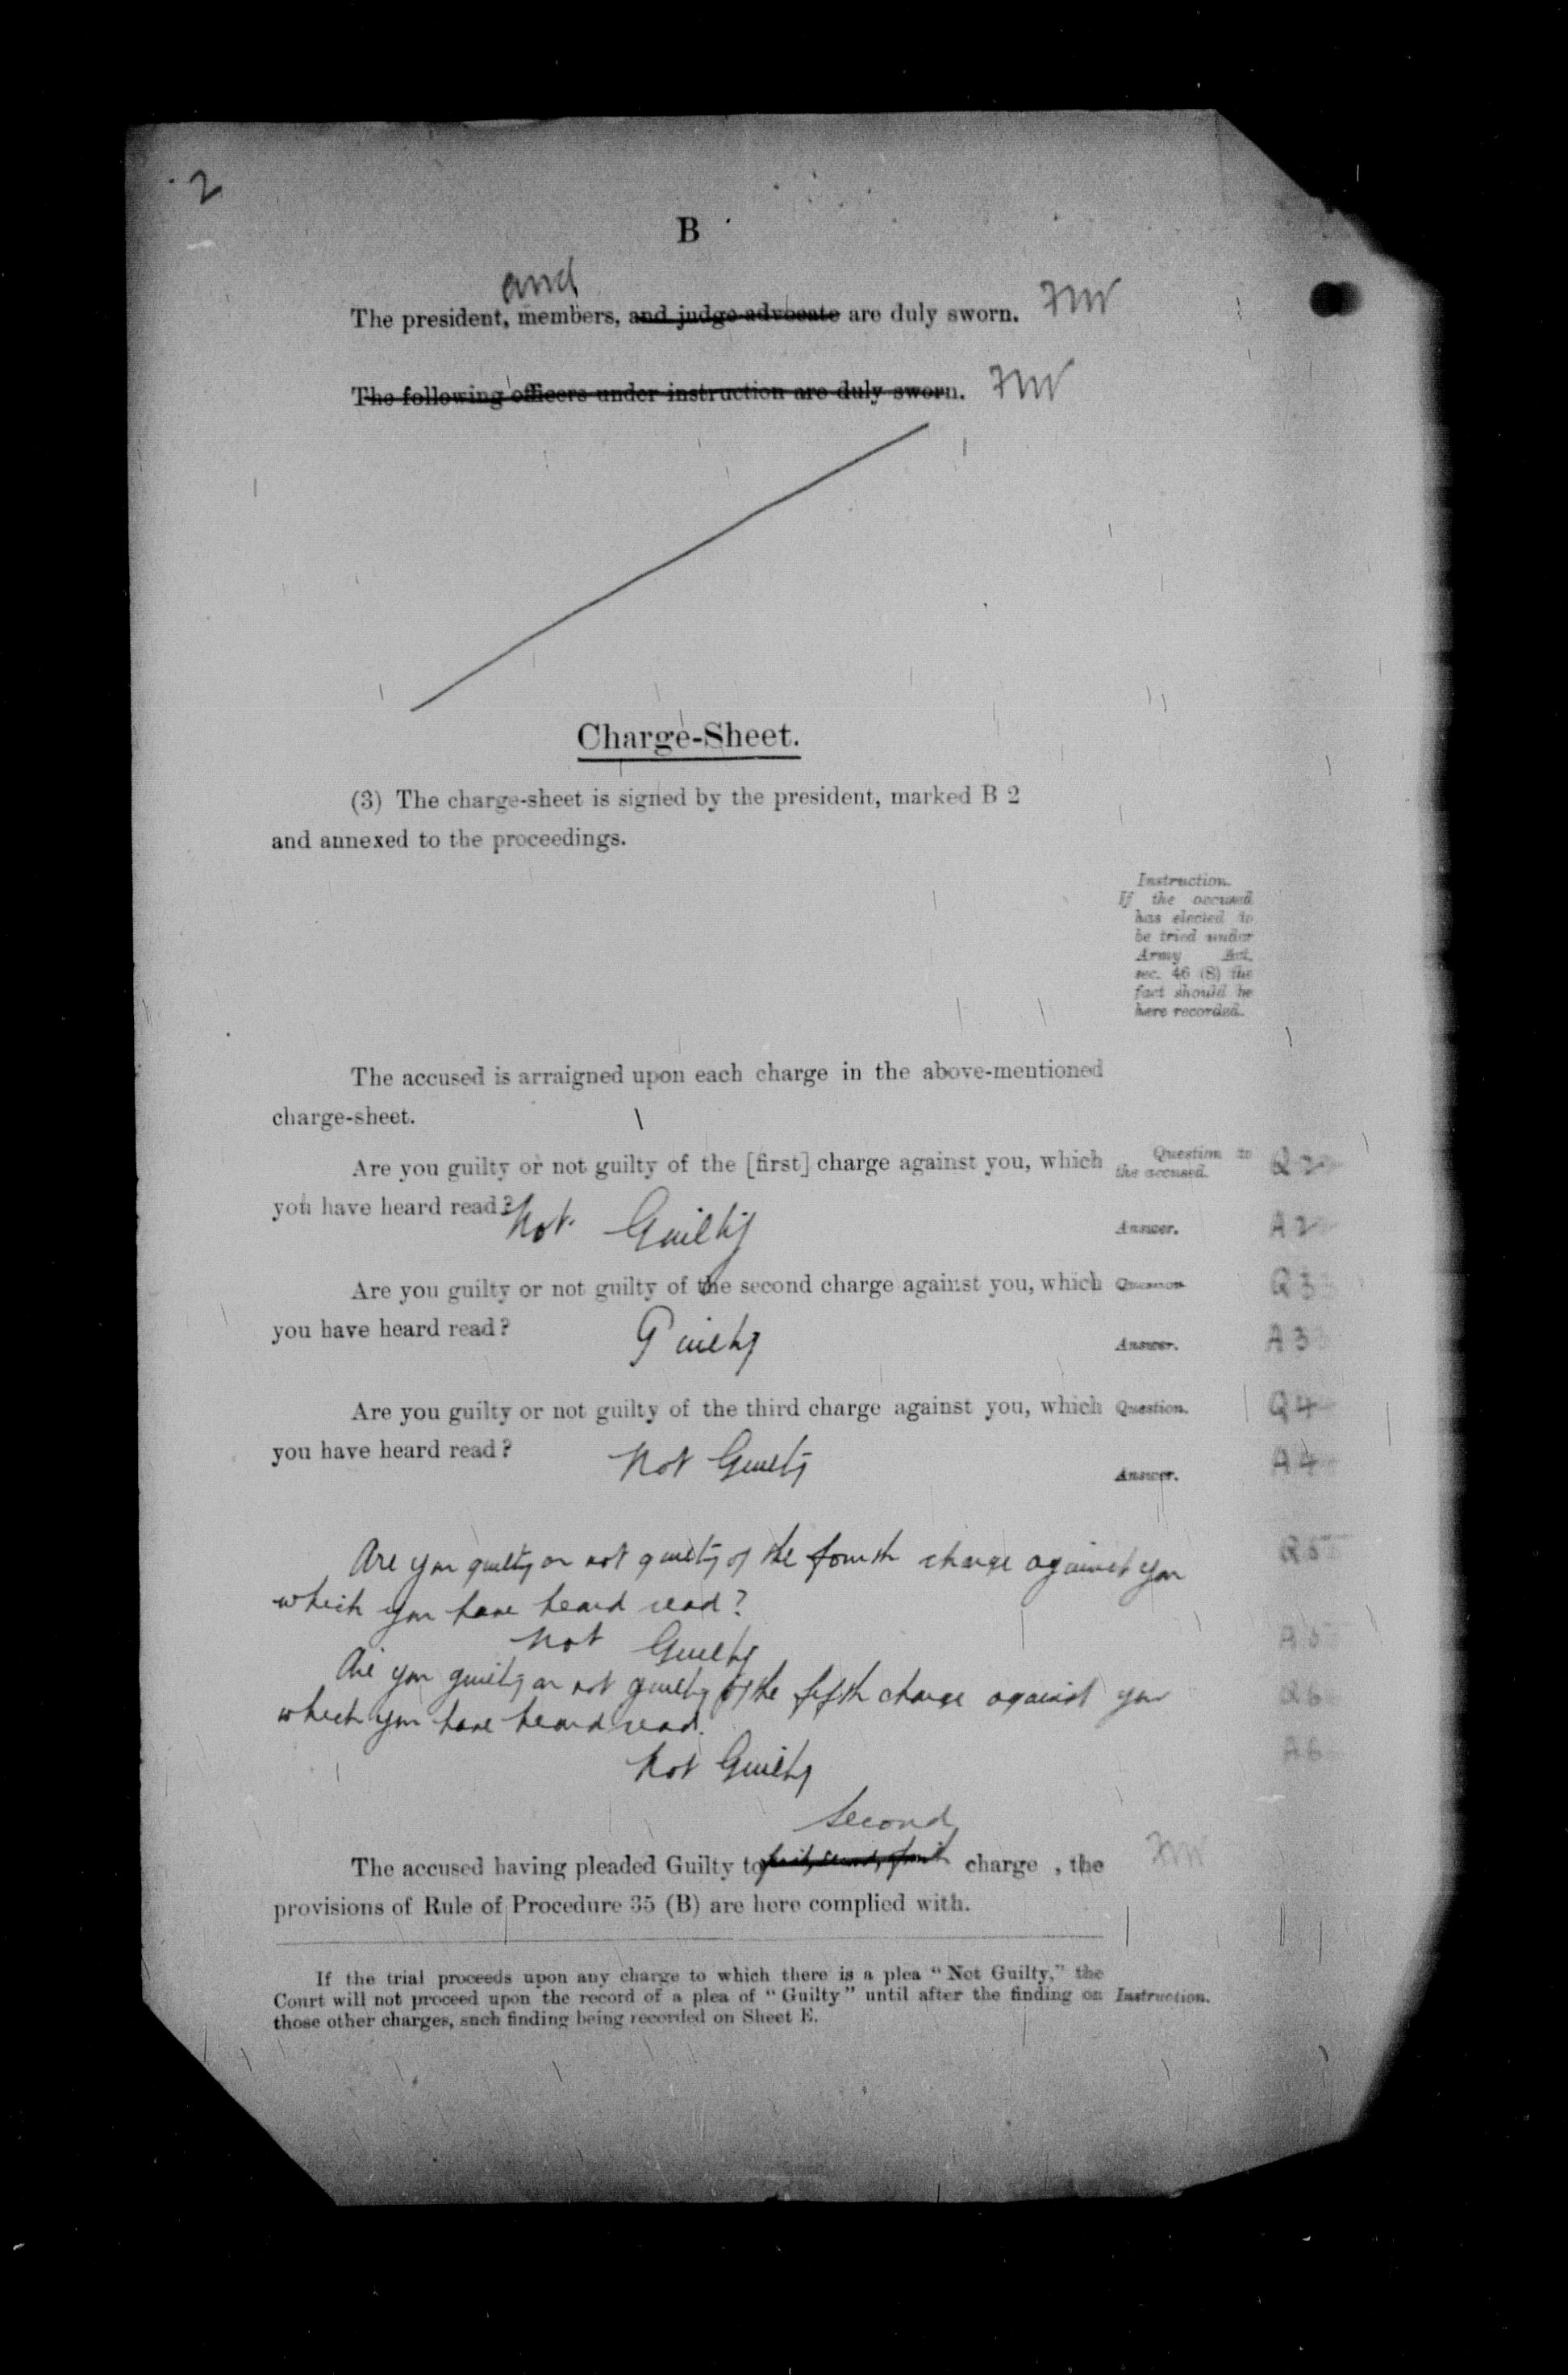 2
B
and
The president, members, and judge-advocate are duly sworn.
The following officers under instruction are duly sworn.
Charge-Sheet.
(3) The charge-sheet is signed by the president, marked B 2
and annexed to the proceedings.
Instruction.
If the accused
has elected to
be tried under
Army Act,
sec. 46 (8) the
fact should be
here recorded.
The accused is arraigned upon each charge in the above-mentioned
charge-sheet.
Are you guilty or not guilty of the [first] charge against you, which
Question to
the accused.
Q 2
you have heard read? Not Guilty
Answer.
A 2
Are you guilty or not guilty of the second charge against you, which
Question
Q 3
you have heard read? Guilty
Answer.
A 3
Are you guilty or not guilty of the third charge against you, which
Question.
Q 4
you have heard read? Not Guilty
Answer.
A 4
Are you guilty or not guilty of the fourth charge against you
Q 5
which you have heard read?
Not Guilty
A 5
Are you guilty or not guilty of the fifth charge against you
Q 6
which you have heard read.
Not Guilty
A 6
Second
The accused having pleaded Guilty to charge , the
provisions of Rule of Procedure 35 (B) are here complied with.
If the trial proceeds upon any charge to which there is a plea "Not Guilty," the
Court will not proceed upon the record of a plea of "Guilty" until after the finding on
Instruction.
those other charges, such finding being recorded on Sheet E.